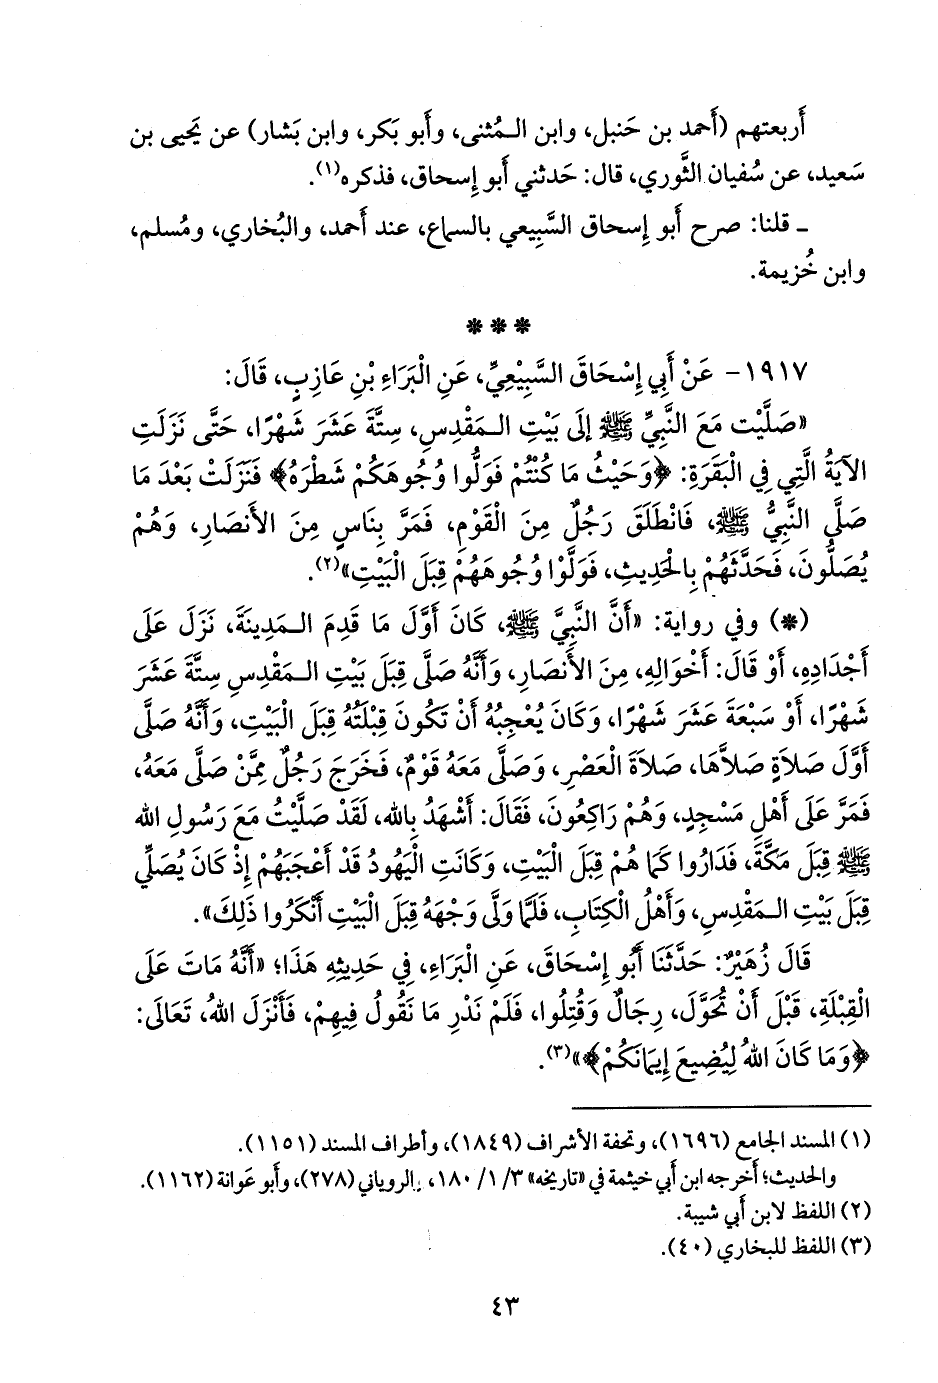 أَربعتهم (أَحمد بن حَنبل، وابن الـمُثنى، وأَبو بَكر، وابن بَشار) عن يَحيى بن
سَعيد، عن سُفيان الثَّوري، قال: حَدثني أَبو إِسحاق، فذكره(١).
ـ قلنا: صرح أَبو إِسحاق السَّبِيعي بالسماع، عند أَحمد، والبُخاري، ومُسلم،
وابن خُزيمة.
* * *
١٩١٧- عَنْ أَبِي إِسْحَاقَ السَّبِيْعِيِّ، عَنِ الْبَرَاءِ بْنِ عَازِبٍ، قَالَ:
«صَلَّيْت مَعَ النَّبِيِّ ﷺ إِلَى بَيْتِ الـمَقْدِسِ، سِتَّةَ عَشَرَ شَهْرًا، حَتَّى نَزَلَتِ
الآيَةُ الَّتِي فِي الْبَقَرَةِ: ﴿وَحَيْثُ مَا كُنْتُمْ فَوَلُّوا وُجُوهَكُمْ شَطْرَهُ﴾ فَنَزَلَتْ بَعْدَ مَا
صَلَّى النَّبِيُّ ﷺ، فَانْطَلَقَ رَجُلٌ مِنَ الْقَوْمِ، فَمَرَّ بِنَاسٍ مِنَ الأَنْصَارِ، وَهُمْ
يُصَلُّونَ، فَحَدَّثَهُمْ بِالْحَدِيثِ، فَوَلَّوْا وُجُوهَهُمْ قِبَلَ الْبَيْتِ»(٢).
(*) وفي رواية: «أَنَّ النَّبِيَّ ﷺ، كَانَ أَوَّلَ مَا قَدِمَ الـمَدِينَةَ، نَزَلَ عَلَى
أَجْدَادِهِ، أَوْ قَالَ: أَخْوَالِهِ، مِنَ الأَنْصَارِ، وَأَنَّهُ صَلَّى قِبَلَ بَيْتِ الـمَقْدِسِ سِتَّةَ عَشَرَ
شَهْرًا، أَوْ سَبْعَةَ عَشَرَ شَهْرًا، وَكَانَ يُعْجِبُهُ أَنْ تَكُونَ قِبْلَتُهُ قِبَلَ الْبَيْتِ، وَأَنَّهُ صَلَّى
أَوَّلَ صَلاَةٍ صَلاَّهَا، صَلاَةَ الْعَصْرِ، وَصَلَّى مَعَهُ قَوْمٌ، فَخَرَجَ رَجُلٌ مِمَّنْ صَلَّى مَعَهُ،
فَمَرَّ عَلَى أَهْلِ مَسْجِدٍ، وَهُمْ رَاكِعُونَ، فَقَالَ: أَشْهَدُ بِالله، لَقَدْ صَلَّيْتُ مَعَ رَسُولِ الله
ﷺ قِبَلَ مَكَّةَ، فَدَارُوا كَمَا هُمْ قِبَلَ الْبَيْتِ، وَكَانَتِ الْيَهُودُ قَدْ أَعْجَبَهُمْ إِذْ كَانَ يُصَلِّي
قِبَلَ بَيْتِ الـمَقْدِسِ، وَأَهْلُ الْكِتَابِ، فَلَمَّا وَلَّى وَجْهَهُ قِبَلَ الْبَيْتِ أَنْكَرُوا ذَلِكَ».
قَالَ زُهَيْرٌ: حَدَّثَنَا أَبُو إِسْحَاقَ، عَنِ الْبَرَاءِ، فِي حَدِيثِهِ هَذَا؛ «أَنَّهُ مَاتَ عَلَى
الْقِبْلَةِ، قَبْلَ أَنْ تُحَوَّلَ، رِجَالٌ وَقُتِلُوا، فَلَمْ نَدْرِ مَا نَقُولُ فِيهِمْ، فَأَنْزَلَ اللهُ، تَعَالَى:
﴿وَمَا كَانَ اللهُ لِيُضِيعَ إِيمَانَكُمْ﴾»(٣).
(١) المسند الجامع (١٦٩٦)، وتحفة الأشراف (١٨٤٩)، وأطراف المسند (١١٥١).
والحديث؛ أَخرجه ابن أَبي خيثمة في «تاريخه» ٣/ ١/ ١٨٠، والروياني (٢٧٨)، وأَبو عَوانة (١١٦٢).
(٢) اللفظ لابن أَبي شيبة.
(٣) اللفظ للبخاري (٤٠).
٤٣